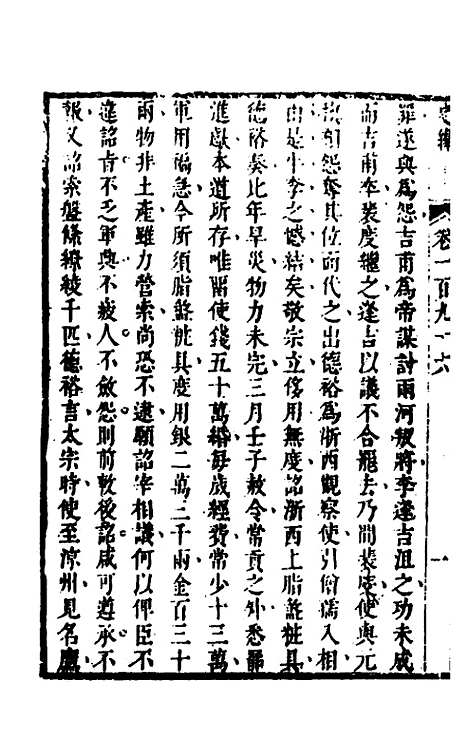 卷一百九十六
罪遂與爲怨吉甫爲帝謀討兩河叛將李逢吉沮之功未成
而吉甫卒裴度繼之逢吉以議不合罷去乃間裴度使與元
相怨奪其位而代之出德裕爲浙西觀察使引僧孺入相
由是牛李之憾結矣敬宗立侈用無度詔浙西上脂盝粧具
德裕奏比年旱災物力未完三月壬子赦令常貢之外悉罷
進獻本道所存唯留使錢五十萬緡每歲經費常少十三萬
軍用褊急今所須脂盝粧具度用銀二萬三千兩金百三十
兩物非土產雖力營索尚恐不逮願詔宰相議何以俾臣不
違詔旨不乏軍興不疲人不斂怨則前敕後詔咸可遵承不
報又詔索盤絛繚綾千匹德裕言太宗時使至涼州見名鷹
一